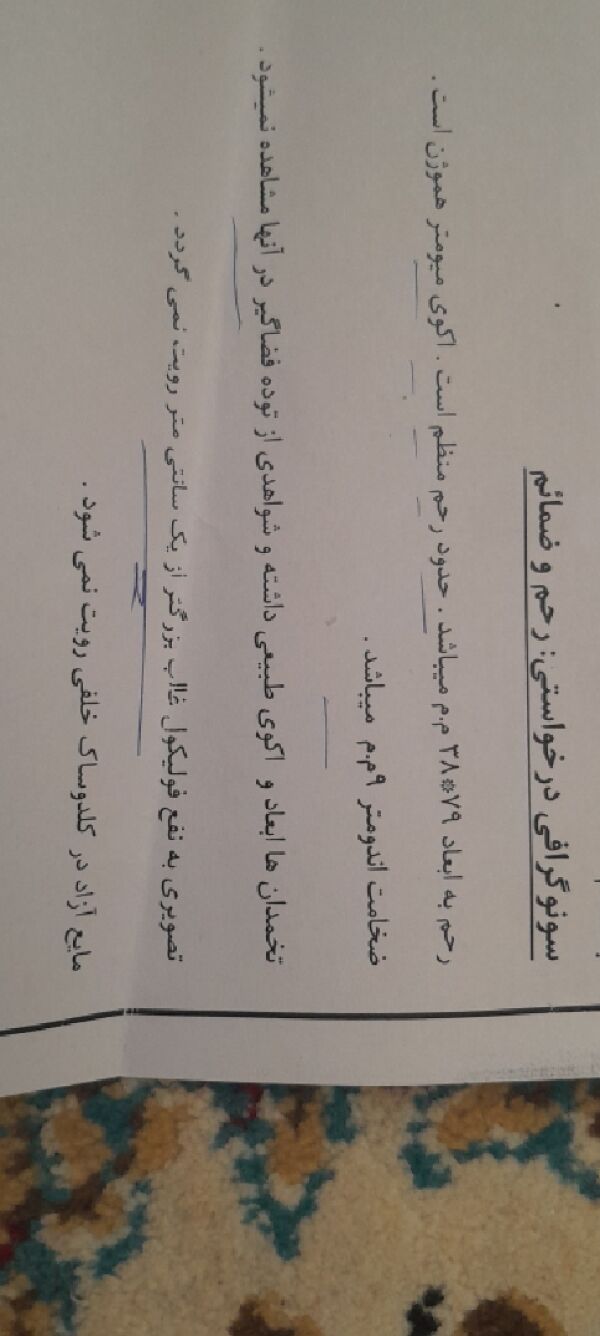 سونوگرافی درخواستی: رحم و ضمائم
رحم به ابعاد ۷۹*۳۸ م.م میباشد . حدود رحم منظم است . اکوی میومتر هموژن است .
ضخامت اندومتر ۹م.م میباشد .
تخمدان ها ابعاد و اکوی طبیعی داشته و شواهدی از توده فضاگیر در آنها مشاهده نمیشود .
تصویری به نفع فولیکول غالب بزرگتر از یک سانتی متر رویت نمی گردد .
مایع آزاد در کلدوساک خلفی رویت نمی شود .